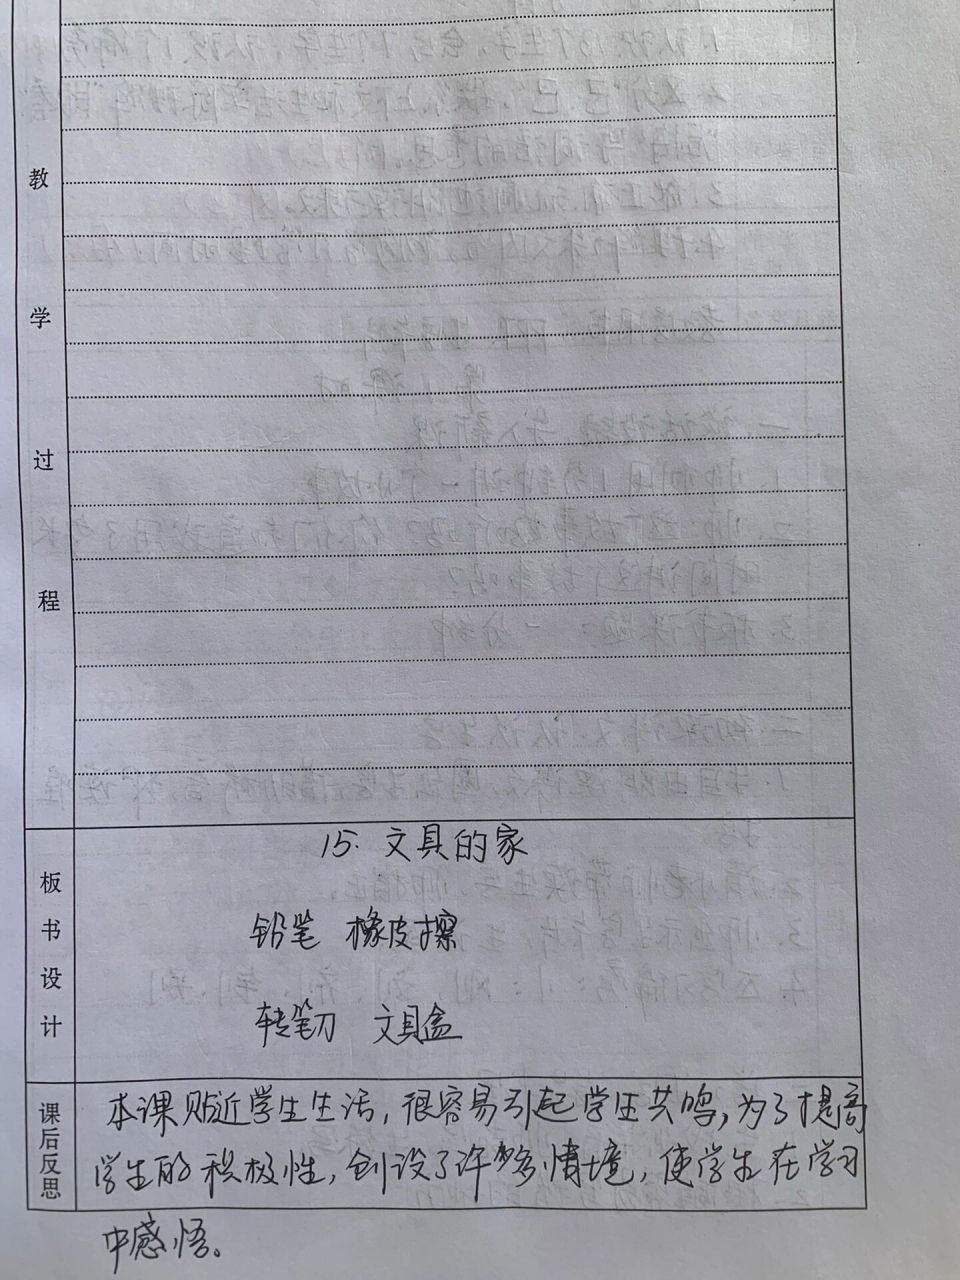 教
学
过
程
板书设计
15. 文具的家
铅笔 橡皮擦
转笔刀 文具盒
课后反思
本课贴近学生生活，很容易引起学生共鸣，为了提高
学生的积极性，创设了许多情境，使学生在学习
中感悟。